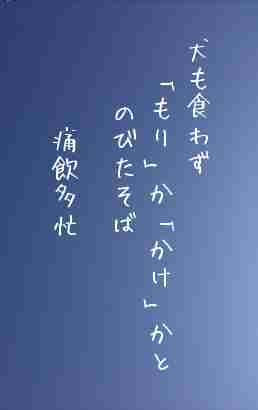 犬も食わず
「もり」か「かけ」かと
のびたそば
痛飲多忙